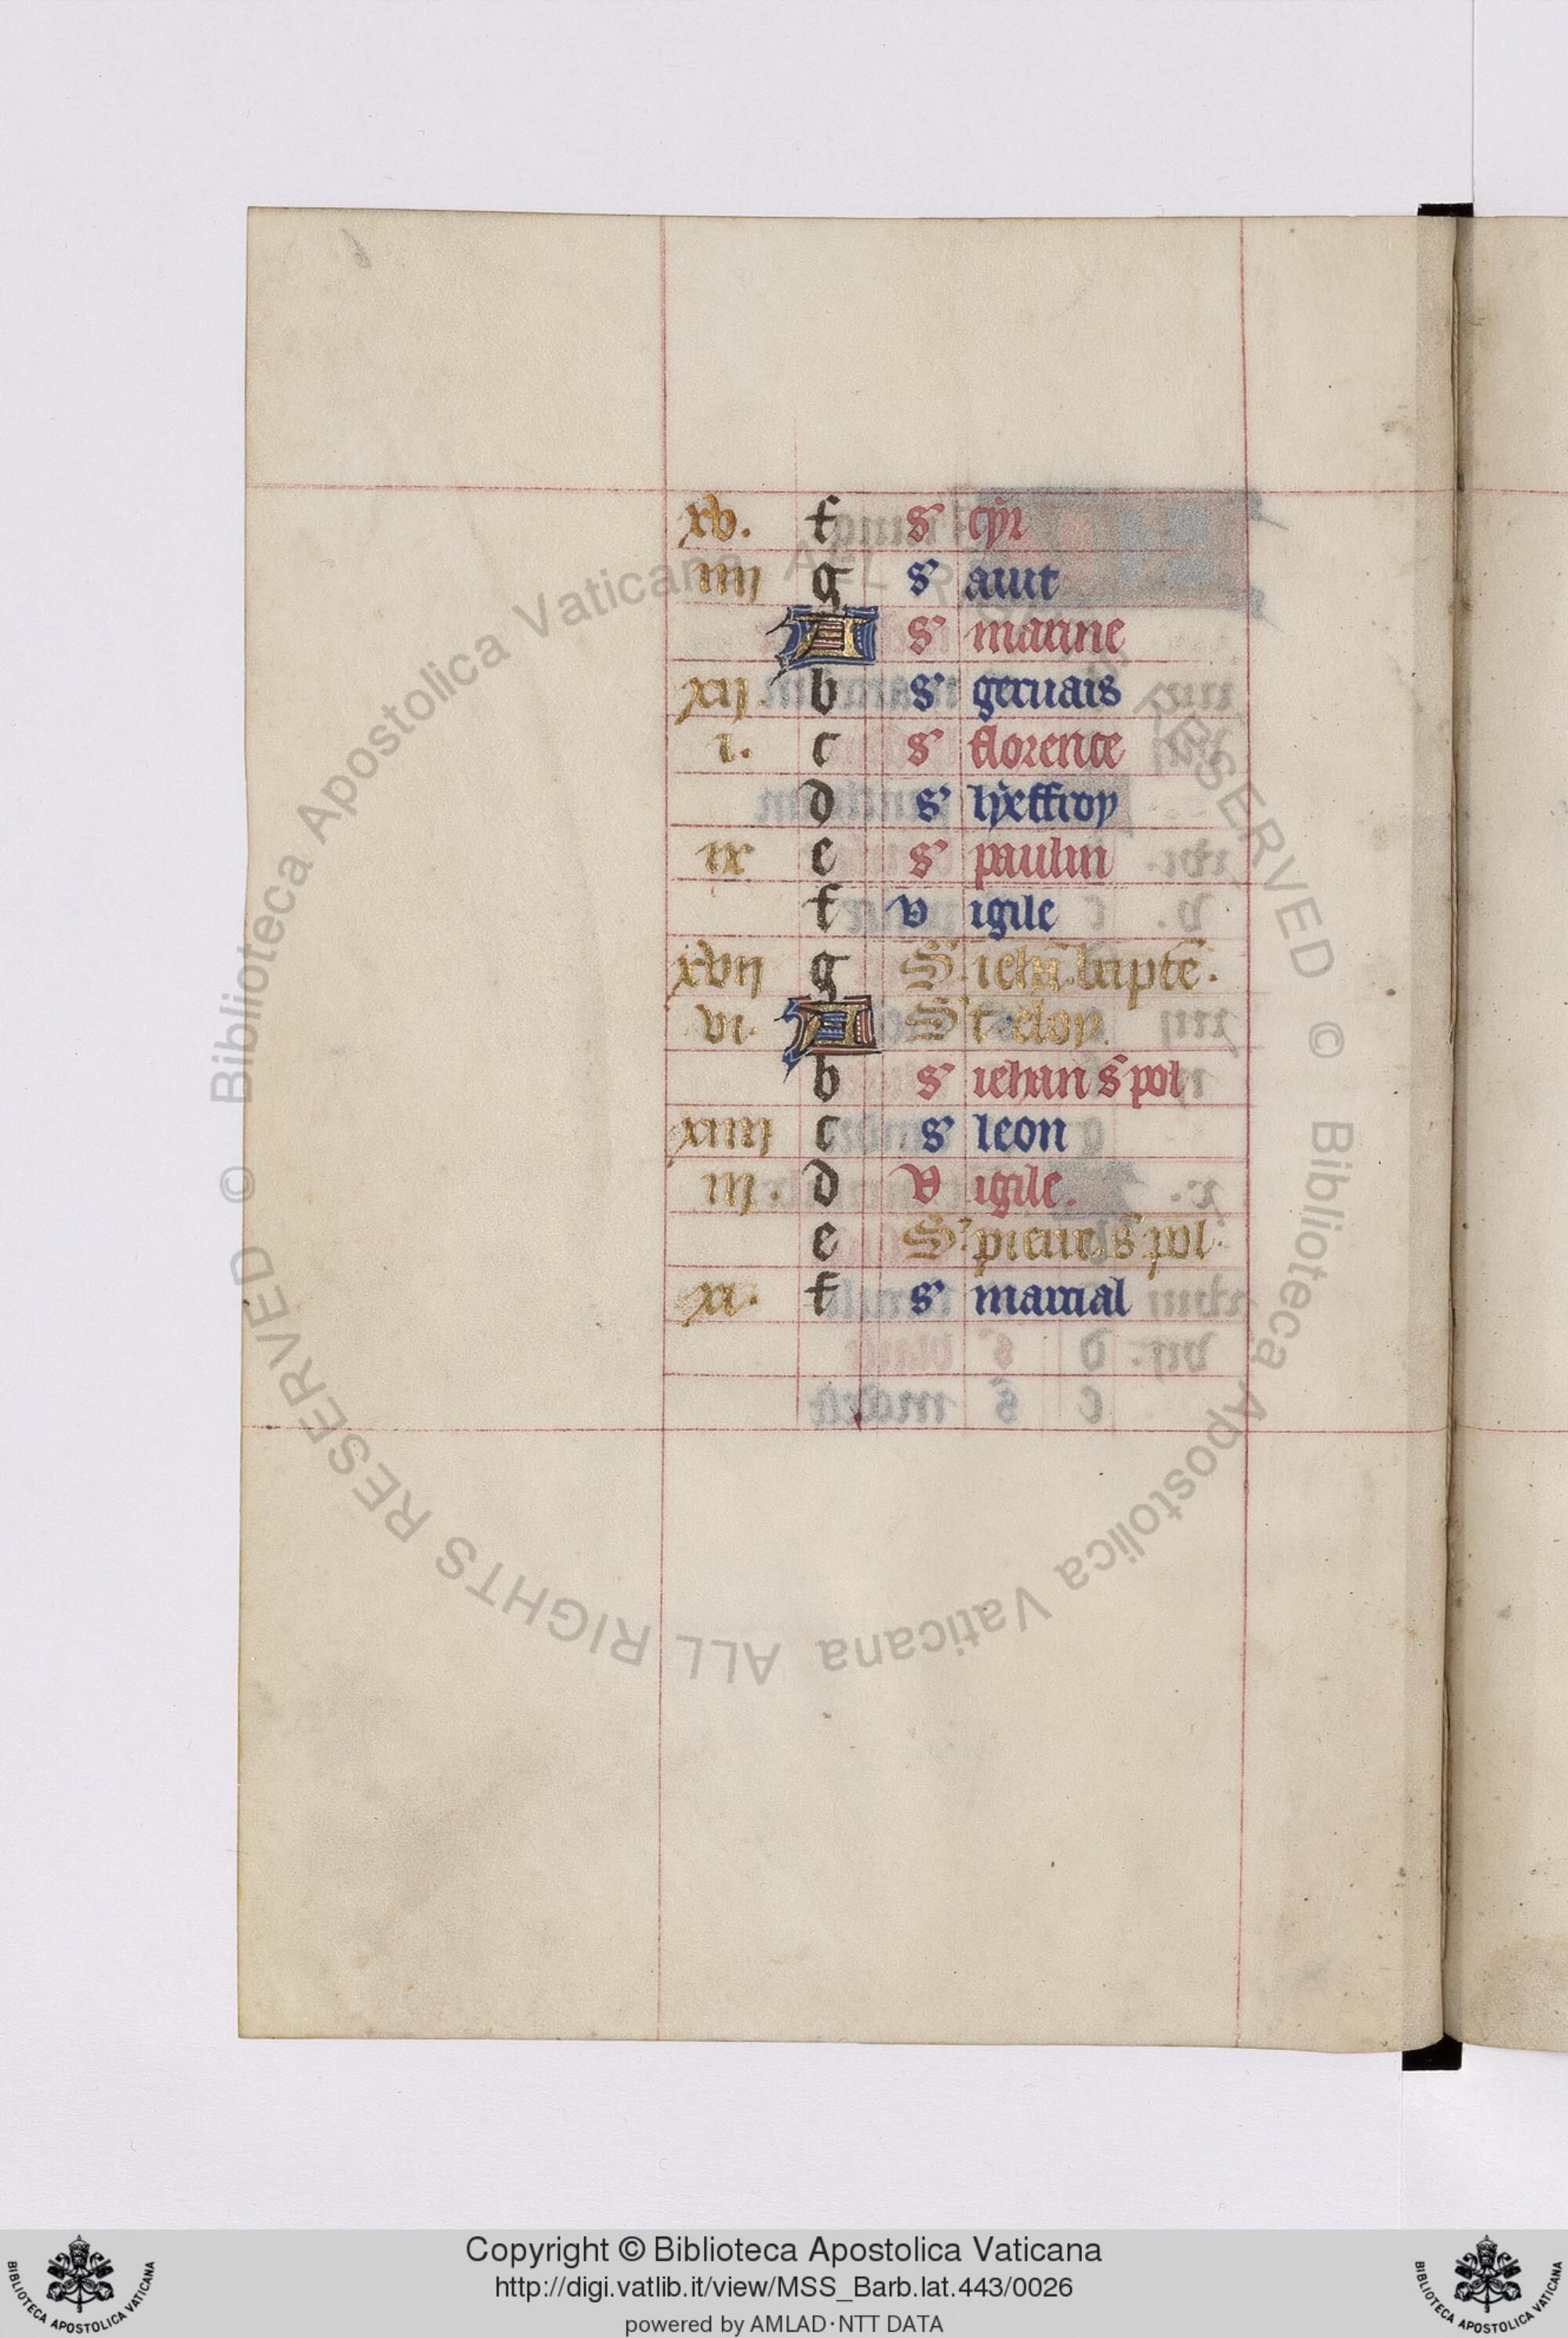 xv. f s' cyr
iiij g s' auit
A s' marine
xij. b s' geruais
i. c s' florence
d s' lyeffroy
ix e s' paulin
f v igile
xvij g S. iehā bapte.
vi. A S't eloy.
b s' iehan s' pol
xiiij c s' leon
iij. d V igile.
e S' pierre s' pol.
xi. f s' marcial
© Biblioteca Apostolica Vaticana ALL RIGHTS RESERVED
© Biblioteca Apostolica Vaticana ALL RIGHTS RESERVED
Copyright © Biblioteca Apostolica Vaticana
http://digi.vatlib.it/view/MSS_Barb.lat.443/0026
powered by AMLAD·NTT DATA
BIBLIOTECA APOSTOLICA VATICANA
BIBLIOTECA APOSTOLICA VATICANA